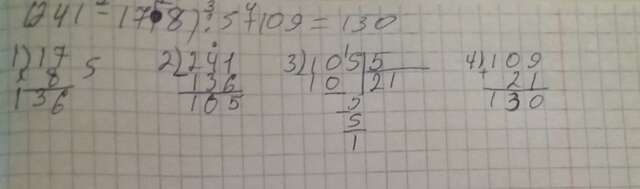 (241 - 17·8) : 5 + 109 = 130
1) 17 5 2) 241 3) 105 | 5 4) 109
× 8 136 10 21 + 21
136 105 5 130
5
1